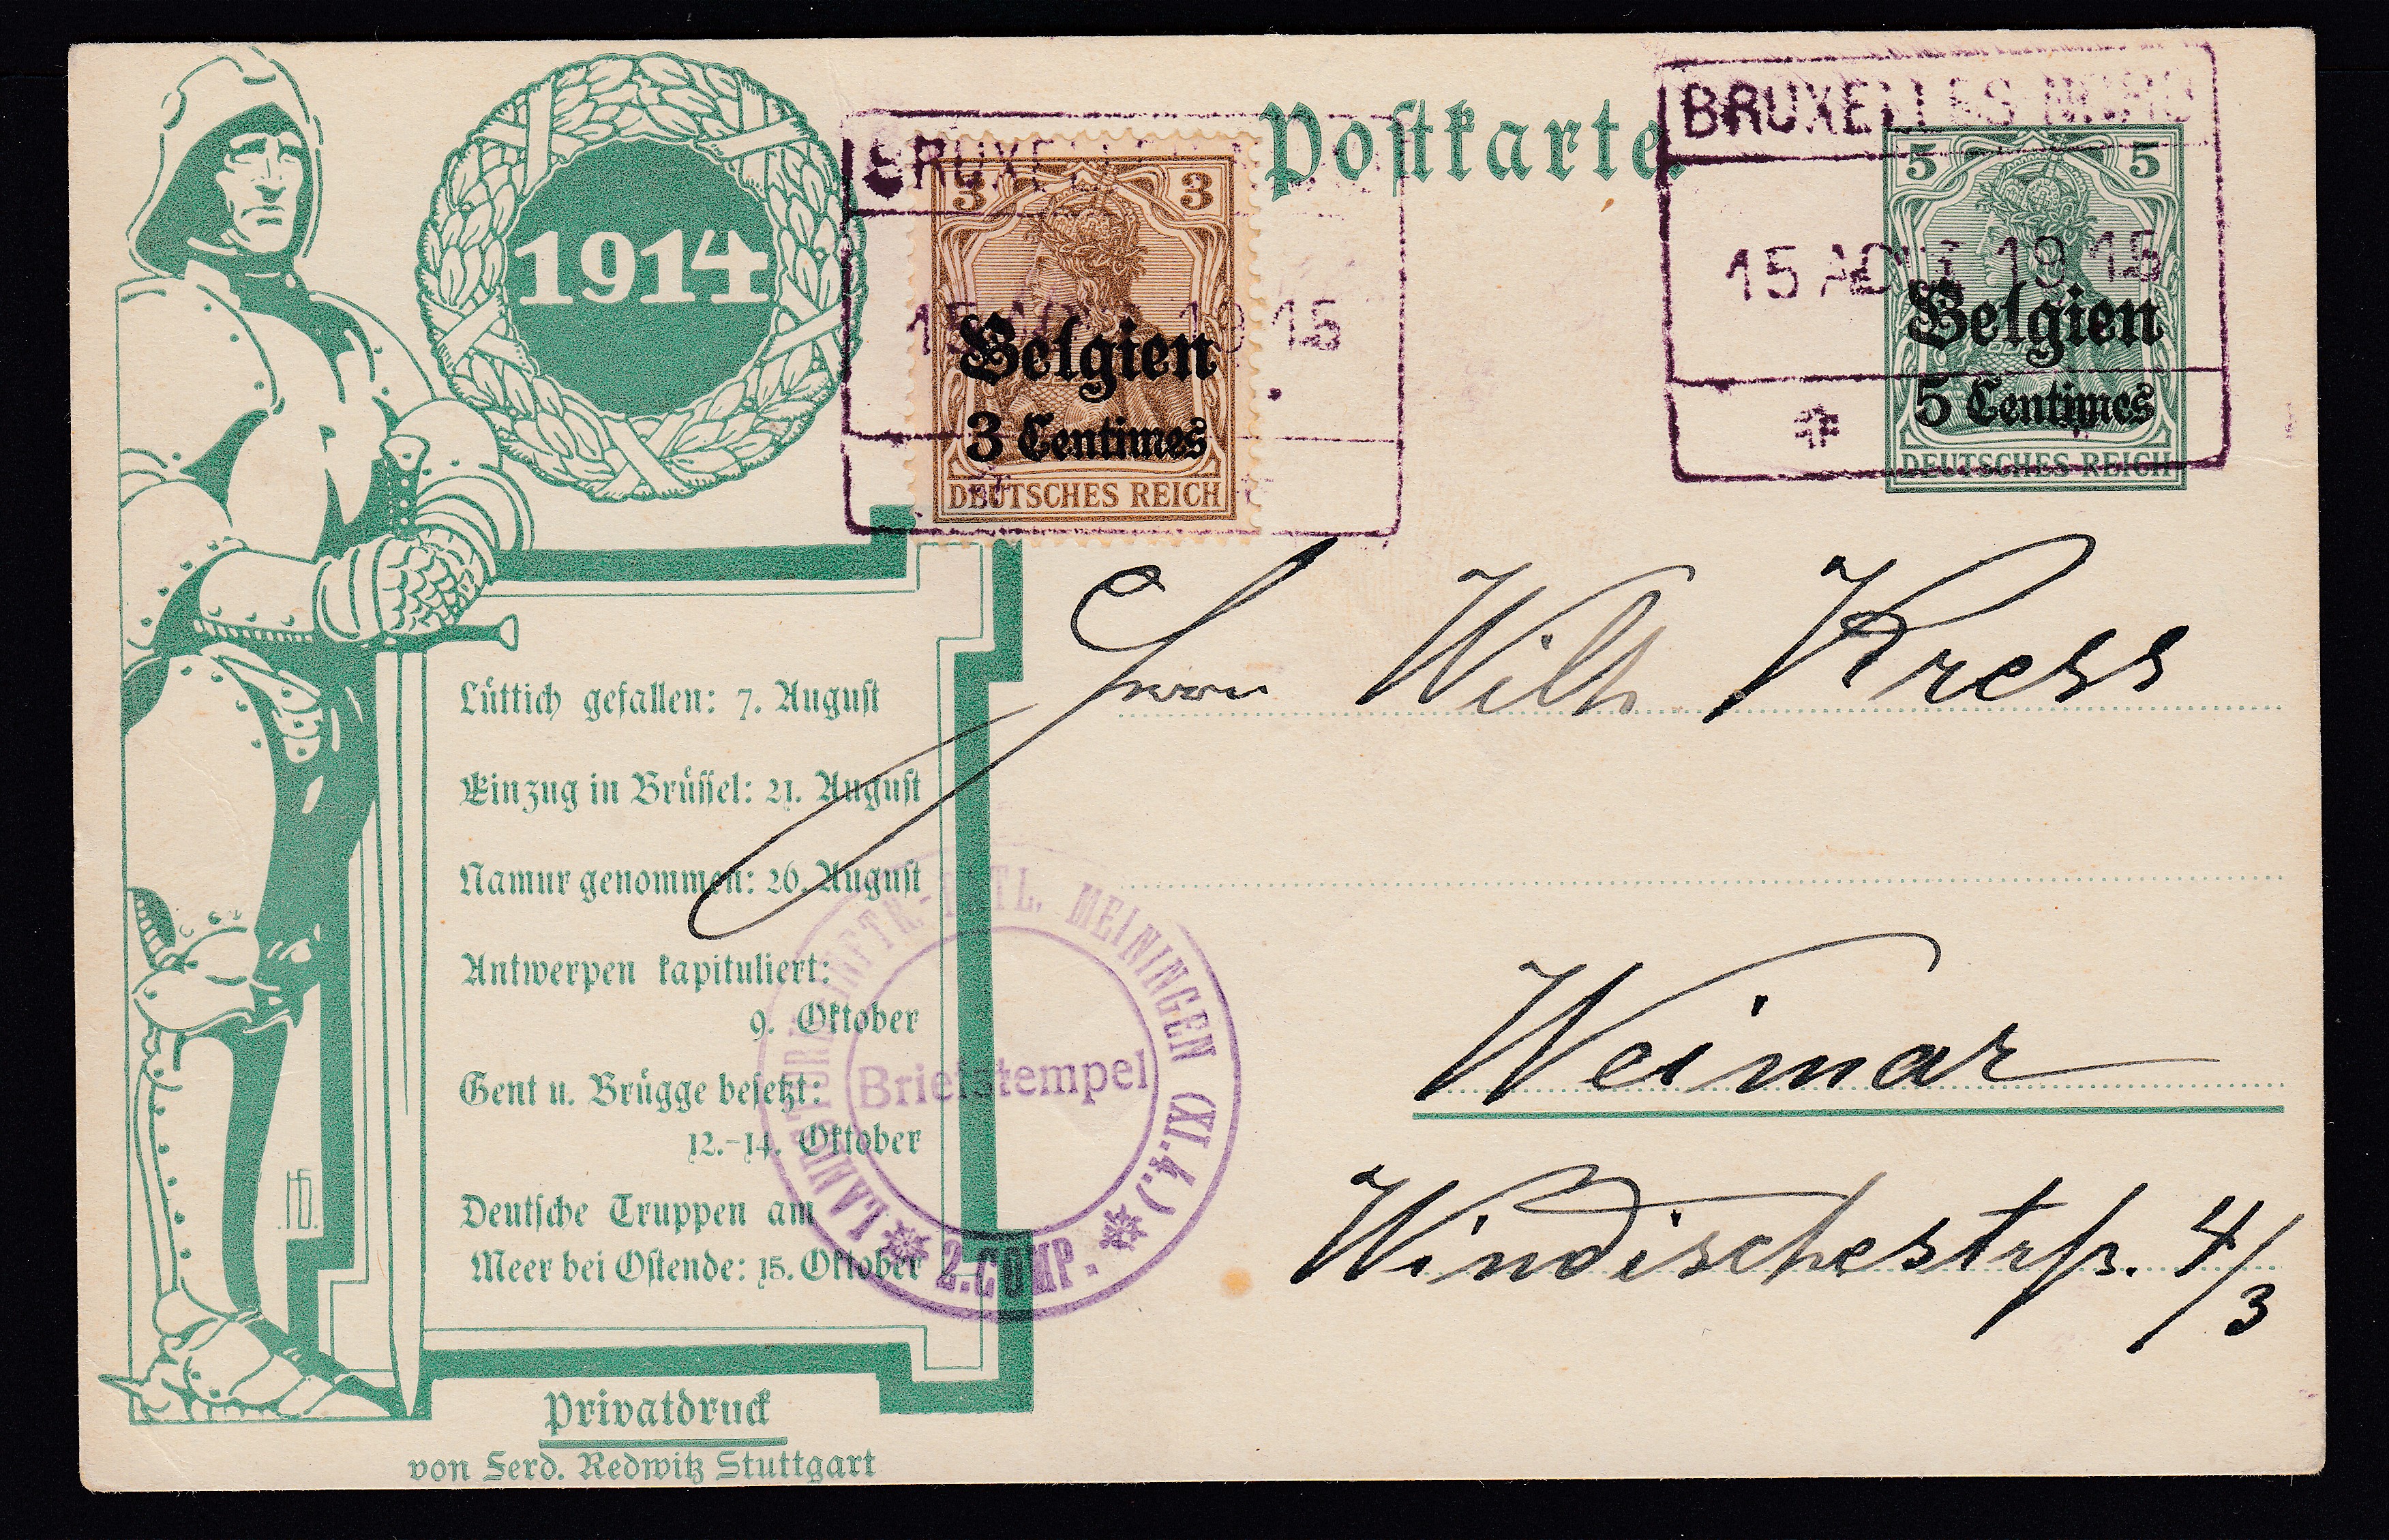 1914
Postkarte
BRUXELLES NORD
15 AOUT 1915
3 3
Belgien
3 Centimes
DEUTSCHES REICH
BRUXELLES NORD
15 AOUT 1915
5 5
Belgien
5 Centimes
DEUTSCHES REICH
Herrn Wilh. Kress
Weimar
Windischestrss. 4/3
Lüttich gefallen: 7. August
Einzug in Brüssel: 21. August
Namur genommen: 26. August
Antwerpen kapituliert:
9. Oktober
Gent u. Brügge besetzt:
12.-14. Oktober
Deutsche Truppen am
Meer bei Ostende: 15. Oktober
LANDSTURM-INFTR.-BATL. MEININGEN (XI.4.)
Briefstempel
2. COMP.
Privatdruck
von Ferd. Redwitz Stuttgart